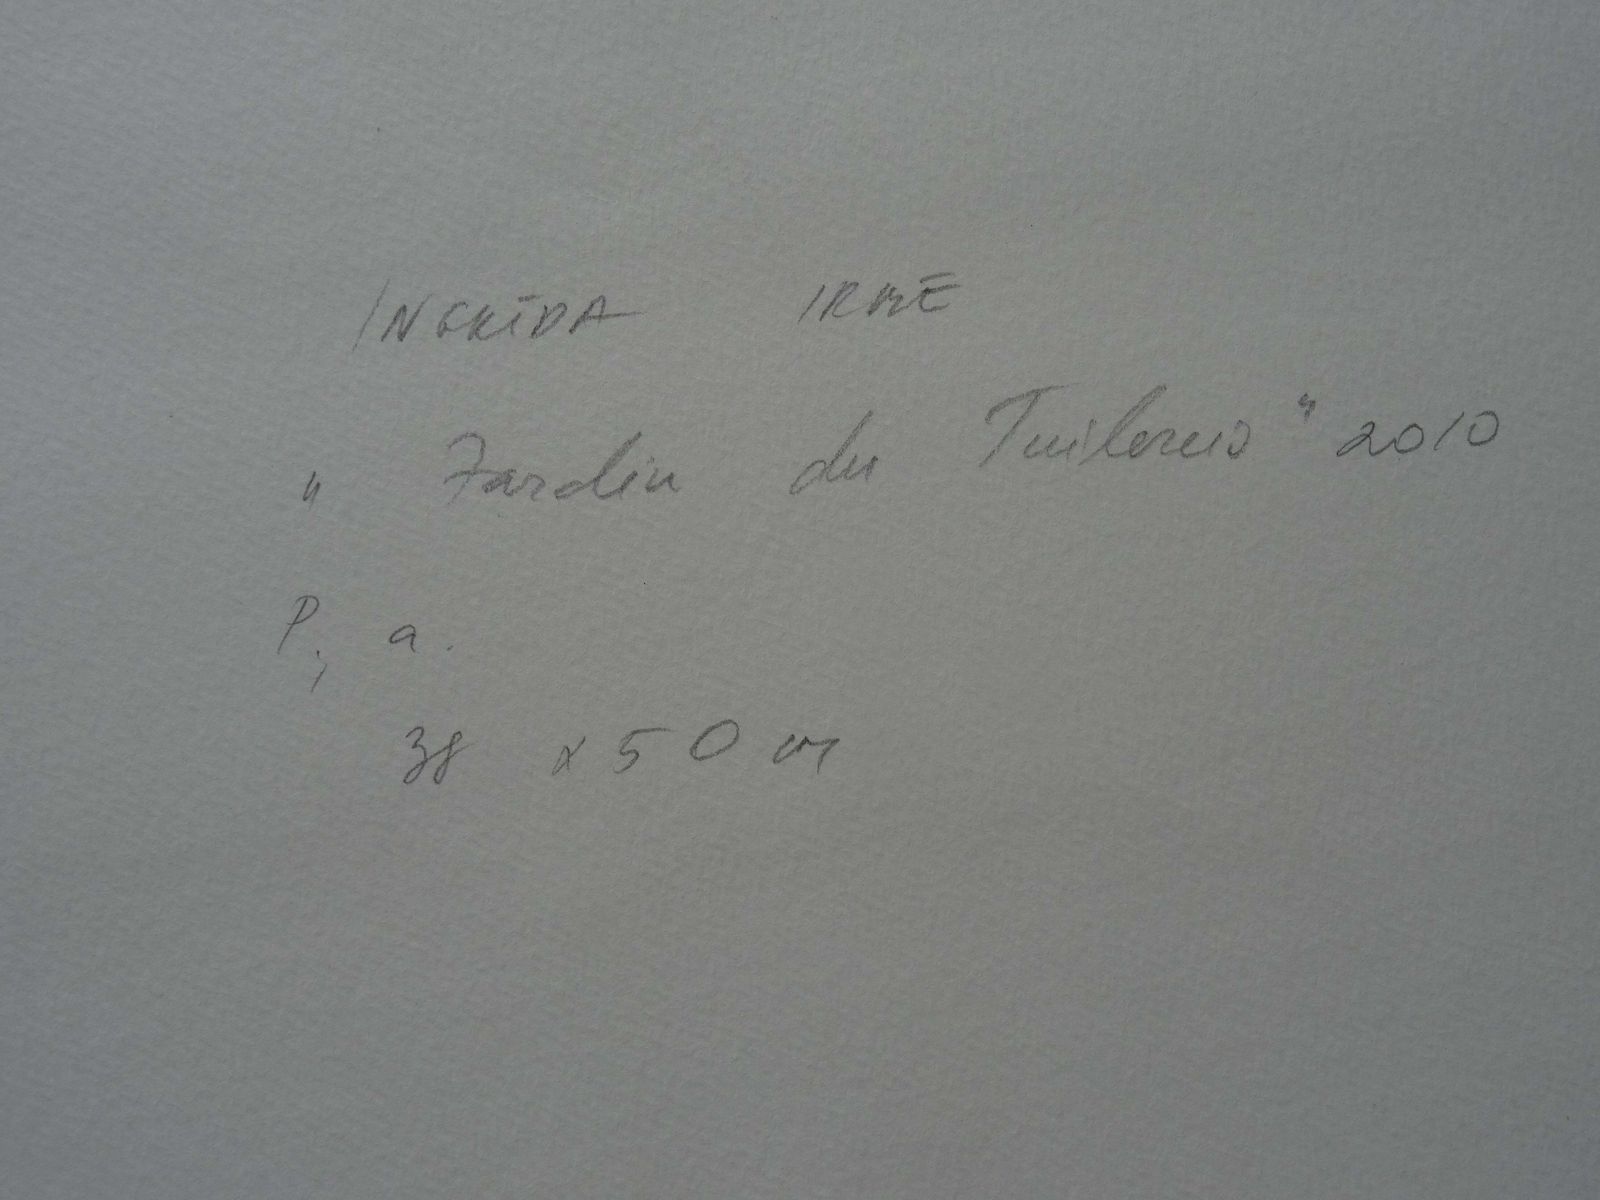 INGRĪDA IRBE
" Jardin du Tuileries " 2010
P; a.
38 x 50 cm